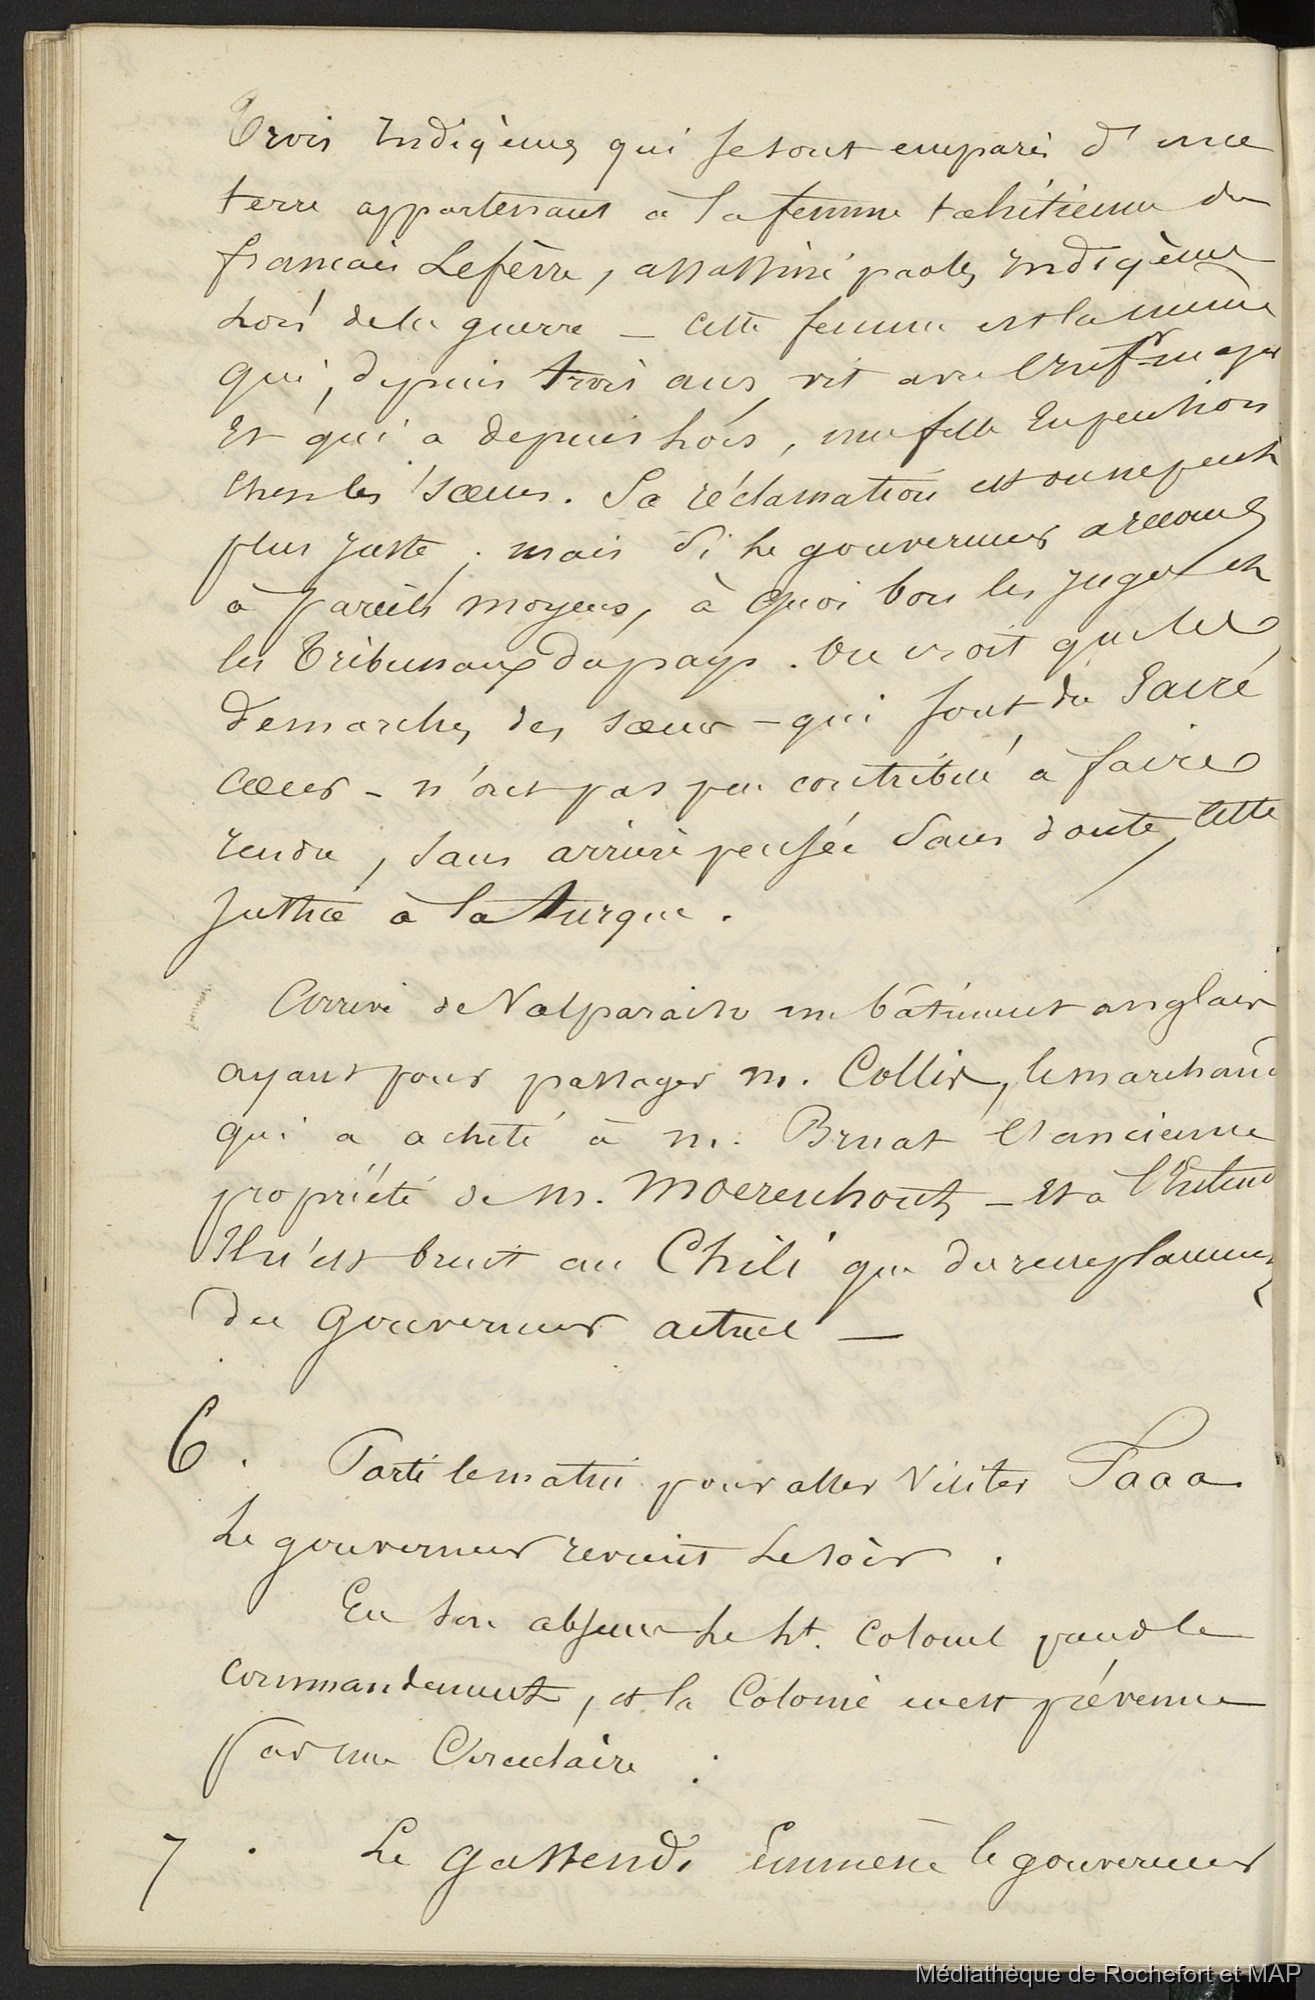 Trois Indigènes qui se sont emparés d'une
terre appartenant à la femme tahitienne du
français Lefèvre, assassiné par les Indigènes
lors de la guerre — cette femme est la même
qui, depuis trois ans, vit avec
et qui a depuis lors, une fille en pension
chez les sœurs. Sa réclamation est on ne peut
plus juste ; mais si le gouverneur a recours
à pareils moyens, à quoi bon les juges et
les Tribunaux du pays. On croit que les
démarches des sœurs – qui sont du Sacré
Cœur – n'ont pas peu contribué à faire
rendre, sans arrière pensée sans doute, cette
justice à la turque.
Arrivé de Valparaiso un bâtiment anglais
ayant pour passager M. Collie, le marchand
qui a acheté à M. Bruat l'ancienne
propriété de M. Moerenhout – et à l'Entend
Il n'est bruit au Chili que du remplacement
du gouverneur actuel —
6. Parti le matin pour aller visiter Faaa
Le gouverneur revient le soir.
En son absence le Lt. Colonel prend le
commandement, et la Colonie en est prévenue
par une Circulaire.
7. Le Gassendi emmène le gouverneur
Médiathèque de Rochefort et MAP